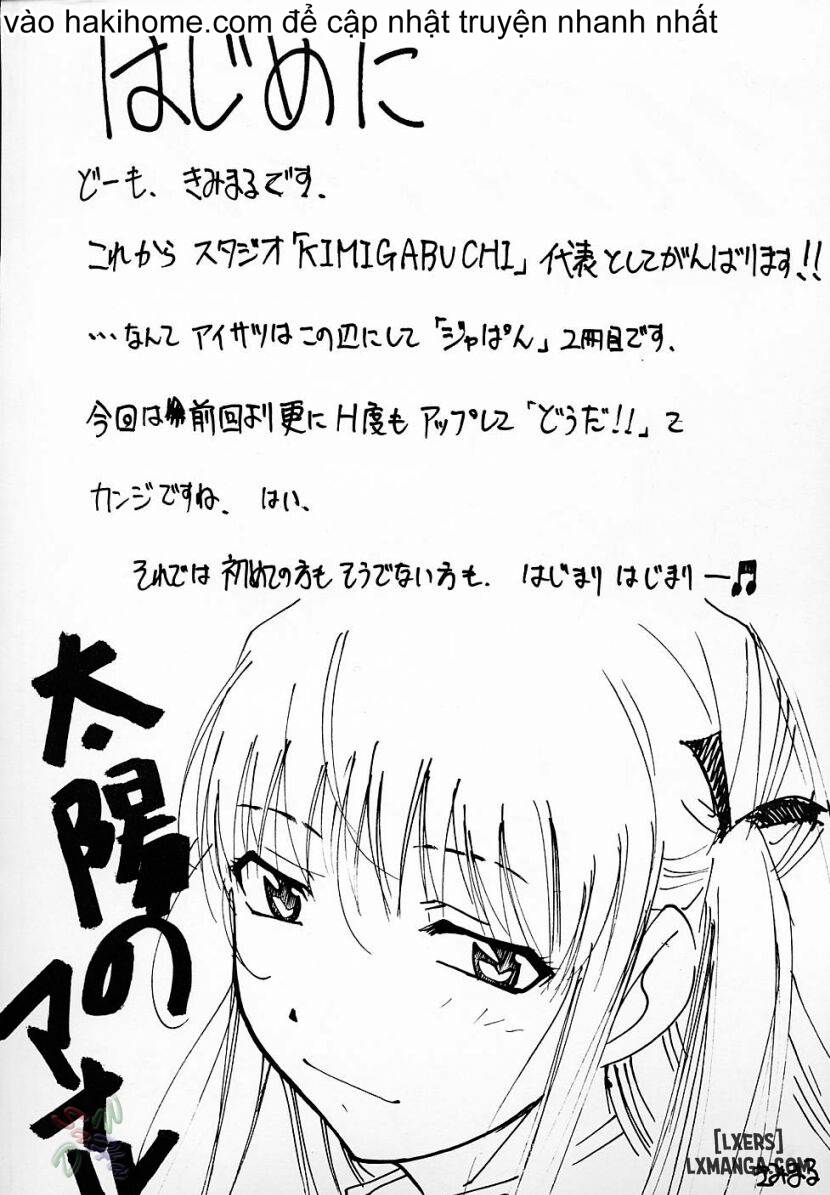 vào hakihome.com để cập nhật truyện nhanh nhất
はじめに
どーも、きみまるです。
これから スタジオ「KIMIGABUCHI」代表としてがんばります!!
…なんて アイサツはこの辺にして「ジャぱん」2冊目です。
今回は前回より更にH度もアップして「どうだ!!」て
カンジですね、はい、
それでは 初めての方もそうでない方も、はじまり はじまりー♫
太陽の
マオル
[LXERS]
LXMANGA.COM
きみまる